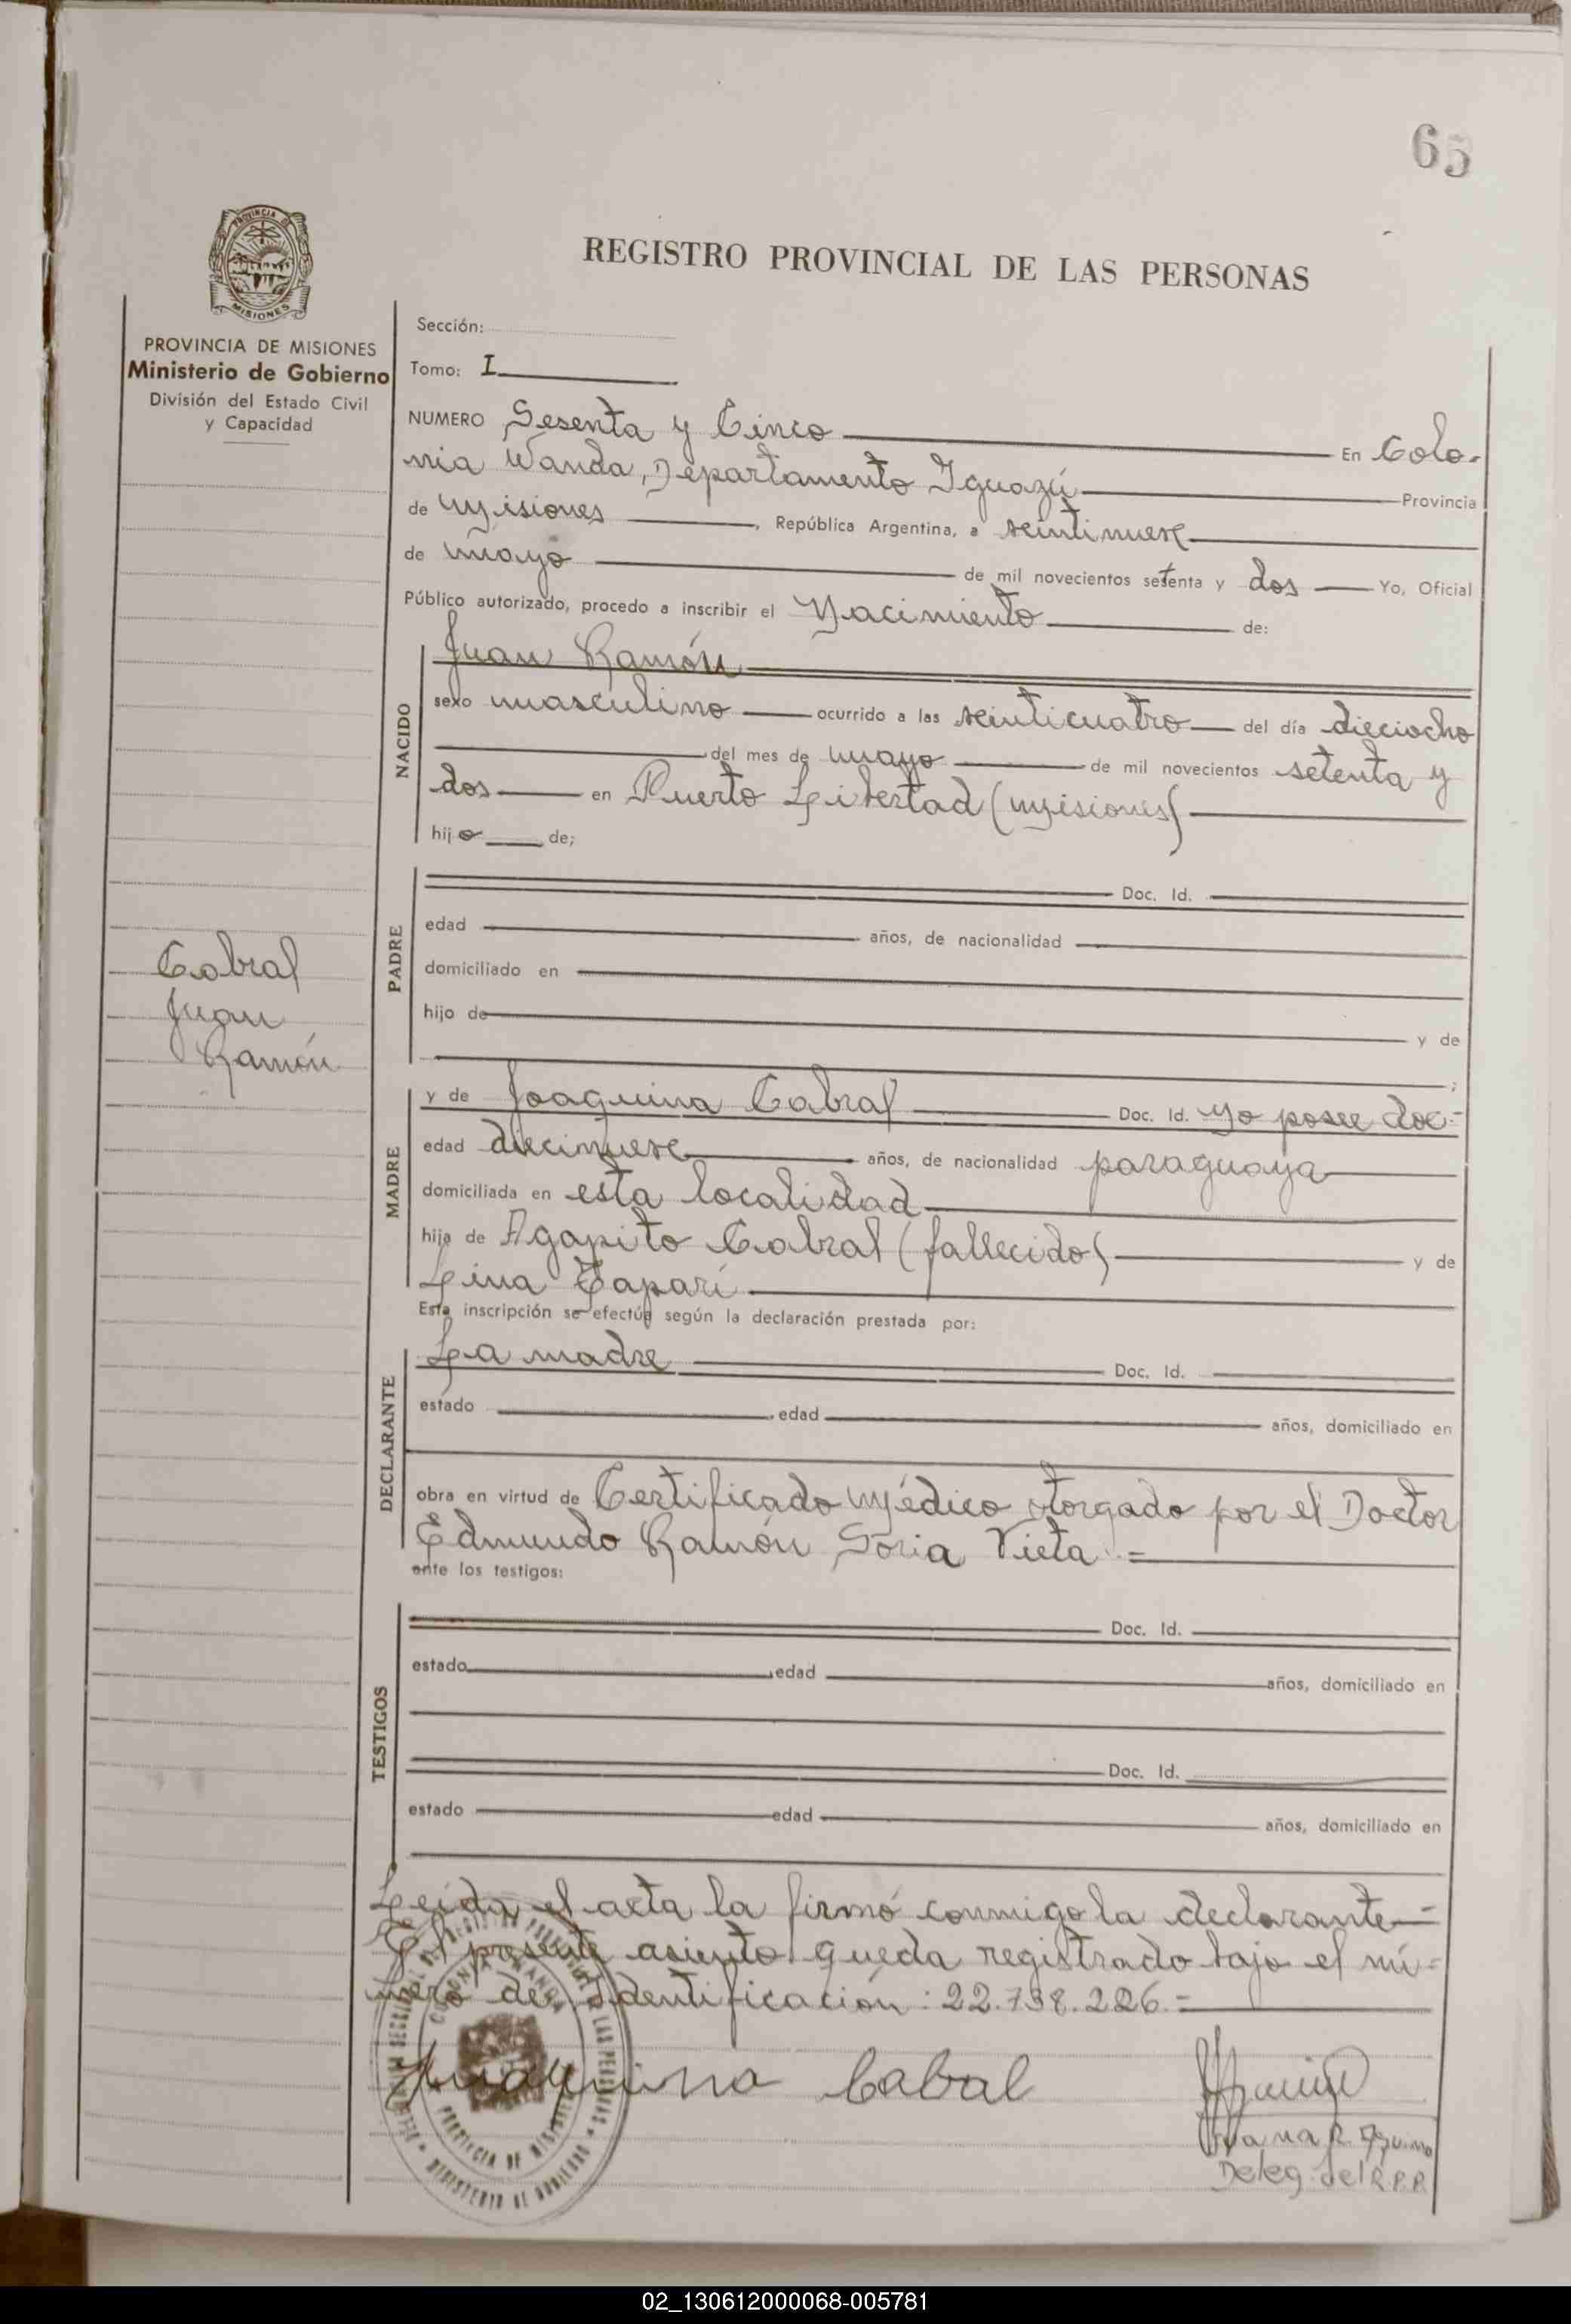 65
PROVINCIA DE
MISIONES
REGISTRO PROVINCIAL DE LAS PERSONAS
PROVINCIA DE MISIONES
Ministerio de Gobierno
División del Estado Civil
y Capacidad
Sección:
Tomo: I
NUMERO Sesenta y Cinco En Colo-
nia Wanda, Departamento Iguazú Provincia
de Misiones, República Argentina, a veintinueve
de mayo de mil novecientos setenta y dos Yo, Oficial
Público autorizado, procedo a inscribir el Nacimiento de:
NACIDO
Juan Ramón
sexo masculino ocurrido a las veinticuatro del día dieciocho
del mes de mayo de mil novecientos setenta y
dos en Puerto Libertad (Misiones)
hijo de;
PADRE
Doc. Id.
edad años, de nacionalidad
domiciliado en
hijo de y de
;
Cabral
Juan
Ramón
MADRE
y de Joaquina Cabral Doc. Id. No posee doc.-
edad diecinueve años, de nacionalidad paraguaya
domiciliada en esta localidad
hija de Agapito Cabral (fallecido) y de
Lina Taparí
Esta inscripción se efectúa según la declaración prestada por:
DECLARANTE
La madre Doc. Id.
estado edad años, domiciliado en
obra en virtud de Certificado Médico otorgado por el Doctor
Edmundo Ramón Soria Vieta.=
ante los testigos:
TESTIGOS
Doc. Id.
estado edad años, domiciliado en
Doc. Id.
estado edad años, domiciliado en
Leida el acta la firmó conmigo la declarante=
El presente asiento queda registrado bajo el nú=
mero de identificación: 22.738.226.=
Joaquina Cabral
Juana R. Aquino
Deleg. del R.P.P.
COLONIA WANDA
PROVINCIA DE MISIONES
MINISTERIO DE GOBIERNO
02_130612000068-005781